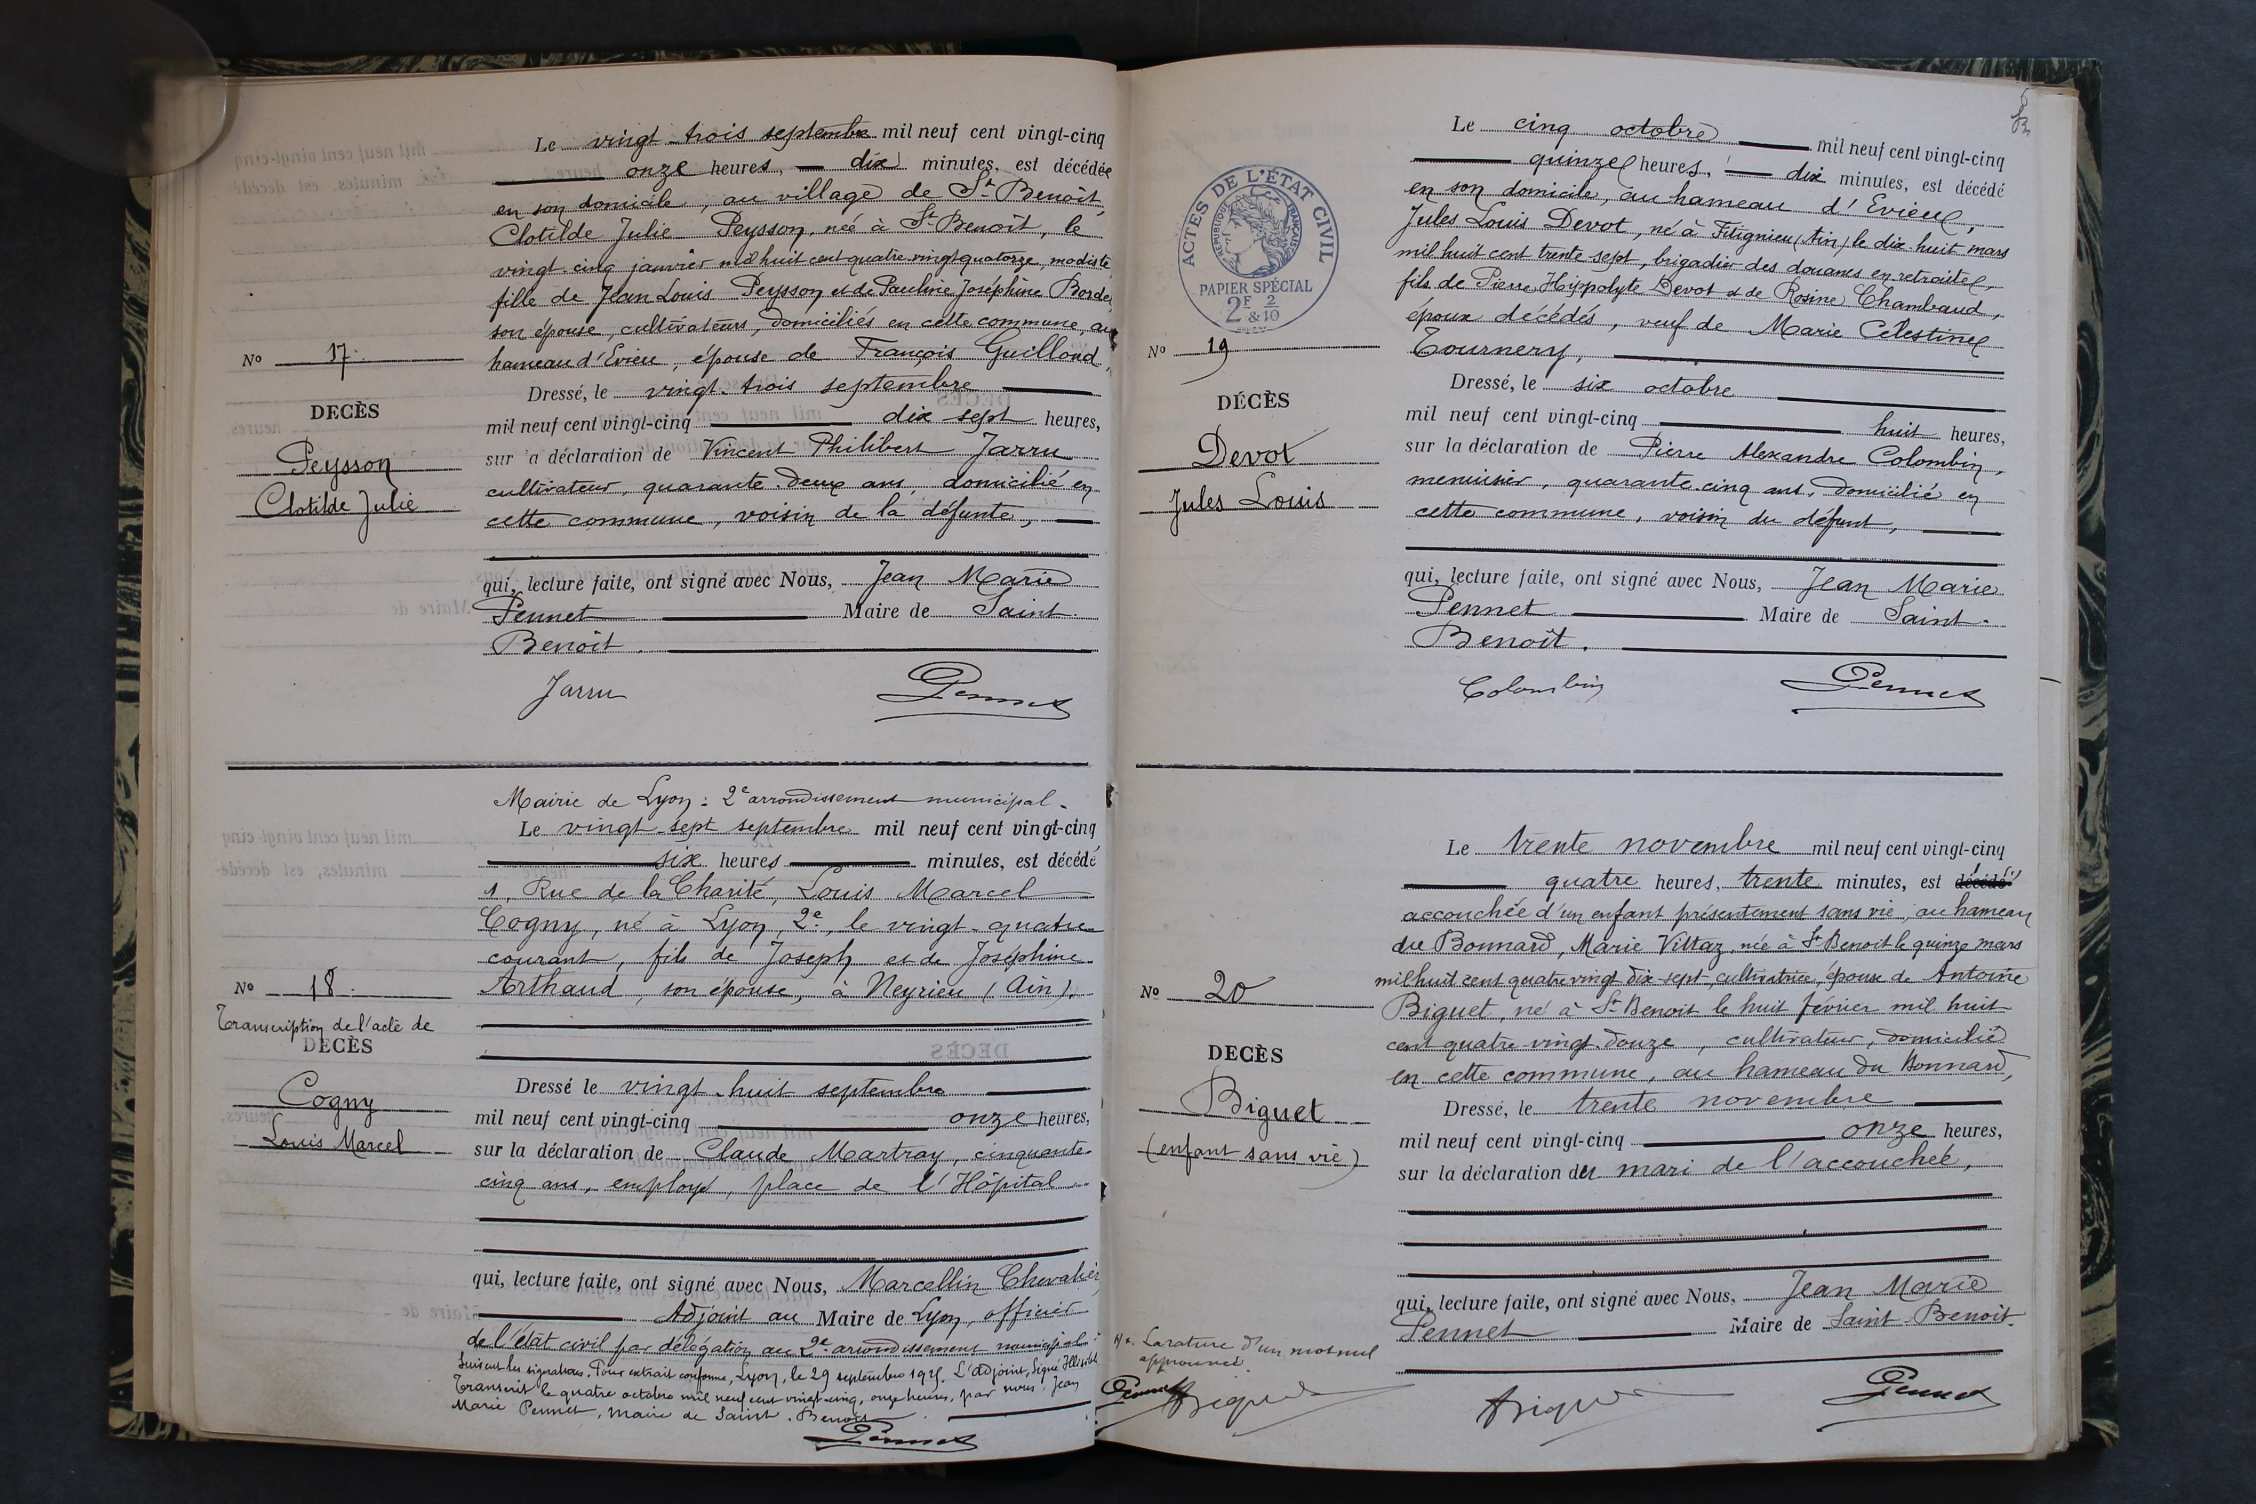 Le vingt-trois septembre mil neuf cent vingt-cinq
onze heures, dix minutes, est décédée
en son domicile, au village de St Benoît,
Clotilde Julie Peysson, née à St Benoît, le
vingt-cinq janvier mil huit cent quatre vingt quatorze, modiste
fille de Jean Louis Peysson et de Pauline Joséphine Borde,
son épouse, cultivateurs, domiciliés en cette commune, au
hameau d'Evieu, épouse de François Guilloud,
No 17.
DECÈS
Peysson
Clotilde Julie
Dressé, le vingt-trois septembre
mil neuf cent vingt-cinq dix-sept heures,
sur la déclaration de Vincent Philibert Jarru
cultivateur, quarante-deux ans, domicilié en
cette commune, voisin de la défunte,
qui, lecture faite, ont signé avec Nous, Jean Marie
Pennet Maire de Saint-
Benoît.
Jarru Pennet
Mairie de Lyon : 2e arrondissement municipal.
Le vingt-sept septembre mil neuf cent vingt-cinq
six heures minutes, est décédé
1, Rue de la Charité, Louis Marcel
Cogny, né à Lyon, 2e, le vingt-quatre
courant, fils de Joseph et de Joséphine
Arthaud, son épouse, à Neyrieu (Ain).
No 18.
Transcription de l'acte de
DECÈS
Cogny
Louis Marcel
Dressé le vingt-huit septembre
mil neuf cent vingt-cinq onze heures,
sur la déclaration de Claude Martray, cinquante-
cinq ans, employé, place de l'Hôpital
qui, lecture faite, ont signé avec Nous, Marcellin Chevalier,
Adjoint au Maire de Lyon, officier
de l'état civil par délégation au 2e arrondissement municipal.
Suivent les signatures. Pour extrait conforme, Lyon, le 29 septembre 1925. L'adjoint, Signé Illisible
Transcrit le quatre octobre mil neuf cent vingt-cinq, onze heures, par nous Jean
Marie Pennet, maire de Saint-Benoît
Pennet
ACTES DE L'ÉTAT CIVIL
RÉPUBLIQUE FRANÇAISE
PAPIER SPÉCIAL
2F 2/10
&
Le cinq octobre mil neuf cent vingt-cinq
quinze heures, dix minutes, est décédé
en son domicile, au hameau d'Evieu,
Jules Louis Devot, né à Fitignieu (Ain) le dix huit mars
mil huit cent trente sept, brigadier des douanes en retraite,
fils de Pierre Hippolyte Devot et de Rosine Chambaud,
époux décédés, veuf de Marie Célestine
Tournery,
No 19
DÉCÈS
Devot
Jules Louis
Dressé, le six octobre
mil neuf cent vingt-cinq huit heures,
sur la déclaration de Pierre Alexandre Colombin,
menuisier, quarante-cinq ans, domicilié en
cette commune, voisin du défunt,
qui, lecture faite, ont signé avec Nous, Jean Marie
Pennet Maire de Saint-
Benoît.
Colombin Pennet
Le trente novembre mil neuf cent vingt-cinq
quatre heures, trente minutes, est décédé
accouchée d'un enfant présentement sans vie, au hameau
du Bonnard, Marie Vittaz, née à St Benoit le quinze mars
mil huit cent quatre vingt dix-sept, cultivatrice, épouse de Antoine
Biguet, né à St Benoit le huit février mil huit
cent quatre-vingt-douze, cultivateur, domicilié
en cette commune, au hameau du Bonnard,
No 20
DECÈS
Biguet
(enfant sans vie)
Dressé, le trente novembre
mil neuf cent vingt-cinq onze heures,
sur la déclaration du mari de l'accouchée,
qui, lecture faite, ont signé avec Nous, Jean Marie
Pennet Maire de Saint-Benoit.
La rature d'un mot nul
approuvée.
Pennet Biguet
Biguet Pennet